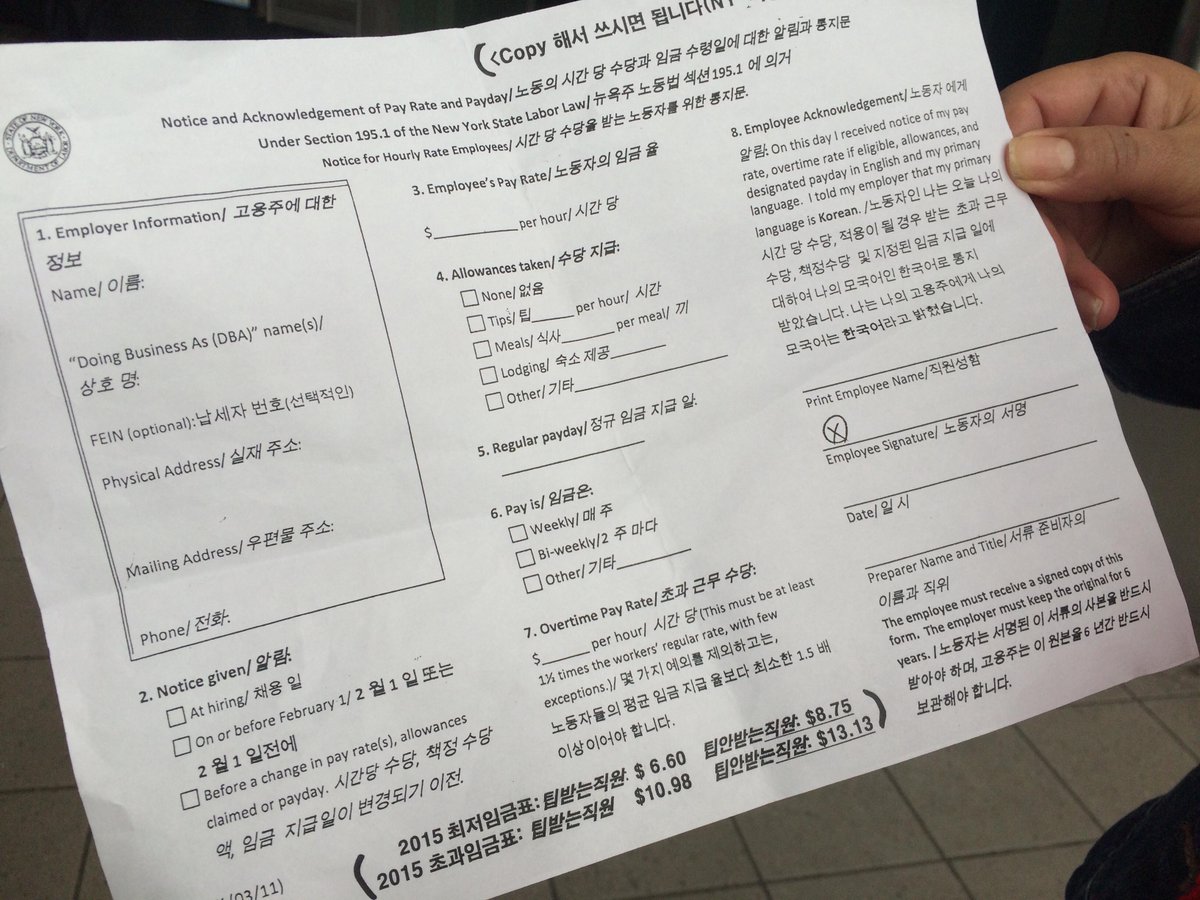 (<Copy 해서 쓰시면 됩니다(NY
Notice and Acknowledgement of Pay Rate and Payday/ 노동의 시간 당 수당과 임금 수령일에 대한 알림과 통지문
Under Section 195.1 of the New York State Labor Law/ 뉴욕주 노동법 섹션195.1 에 의거
Notice for Hourly Rate Employees/ 시간 당 수당을 받는 노동자를 위한 통지문.
1. Employer Information/ 고용주에 대한
정보
Name/ 이름:
“Doing Business As (DBA)” name(s)/
상호 명:
FEIN (optional):납세자 번호(선택적인)
Physical Address/ 실재 주소:
Mailing Address/ 우편물 주소:
Phone/ 전화:
2. Notice given/ 알람:
At hiring/ 채용 일
On or before February 1/ 2 월 1 일 또는
2 월 1 일전에
Before a change in pay rate(s), allowances
claimed or payday. 시간당 수당, 책정 수당
액, 임금 지급일이 변경되기 이전.
/03/11)
3. Employee's Pay Rate/ 노동자의 임금 율
$__________ per hour/ 시간 당
4. Allowances taken/ 수당 지급:
None/ 없음
Tips/ 팁_____ per hour/ 시간
Meals/ 식사______ per meal/ 끼
Lodging/ 숙소 제공______
Other/ 기타________________
5. Regular payday/ 정규 임금 지급 알:
6. Pay is/ 임금은:
Weekly/ 매 주
Bi-weekly/2 주 마다
Other/ 기타________
7. Overtime Pay Rate/ 초과 근무 수당:
$______ per hour/ 시간 당 (This must be at least
1½ times the workers' regular rate, with few
exceptions.)/ 몇 가지 예외를 제외하고는,
노동자들의 평균 임금 지급 율보다 최소한 1.5 배
이상이어야 합니다.
8. Employee Acknowledgement/ 노동자 에게
알림: On this day I received notice of my pay
rate, overtime rate if eligible, allowances, and
designated payday in English and my primary
language. I told my employer that my primary
language is Korean. /노동자인 나는 오늘 나의
시간 당 수당, 적용이 될 경우 받는 초과 근무
수당, 책정수당 및 지정된 임금 지급 일에
대하여 나의 모국어인 한국어로 통지
받았습니다. 나는 나의 고용주에게 나의
모국어는 한국어라고 밝혔습니다.
Print Employee Name/직원성함
X
Employee Signature/ 노동자의 서명
Date/ 일 시
Preparer Name and Title/ 서류 준비자의
이름과 직위
The employee must receive a signed copy of this
form. The employer must keep the original for 6
years. /노동자는 서명된 이 서류의 사본을 반드시
받아야 하며, 고용주는 이 원본을 6 년간 반드시
보관해야 합니다.
( 2015 최저임금표: 팁받는직원: $ 6.60 팁안받는직원: $8.75 )
2015 초과임금표: 팁받는직원 $10.98 팁안받는직원: $13.13